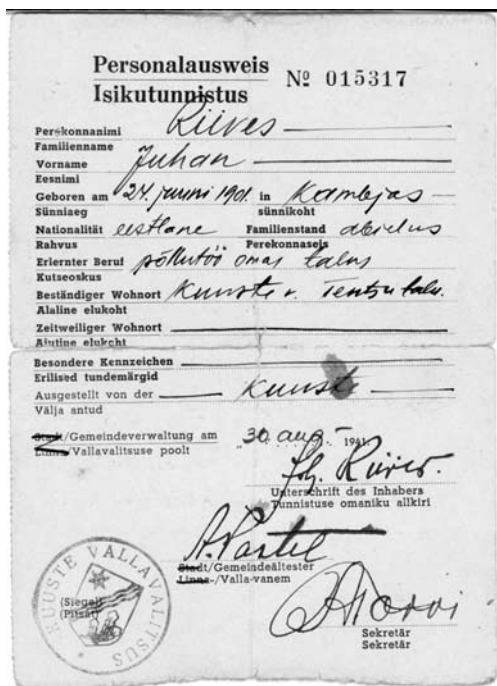 Personalausweis
Isikutunnistus
Nº 015317
Perekonnanimi Kiives
Familienname
Vorname Juhan
Eesnimi
Geboren am 24. juuni 1901. in Kambjas
Sünniaeg sünnikoht
Nationalität eestlane Familienstand abielus
Rahvus Perekonnaseis
Erlernter Beruf põllutöö omas talus
Kutseoskus
Beständiger Wohnort Kuuste v. talu.
Alaline elukoht
Zeitweiliger Wohnort
Ajutine elukcht
Besondere Kennzeichen
Erilised tundemärgid
Ausgestellt von der Kuuste
Välja antud
Stadt/Gemeindeverwaltung am „30. aug. 1941.
Linna-/Vallavalitsuse poolt
Joh. Kiives.
Unterschrift des Inhabers
Tunnistuse omaniku allkiri
Stadt/Gemeindeältester
Linna-/Valla-vanem
KUUSTE VALLAVALITSUS
(Siegel)
(Pitsat)
Sekretär
Sekretär